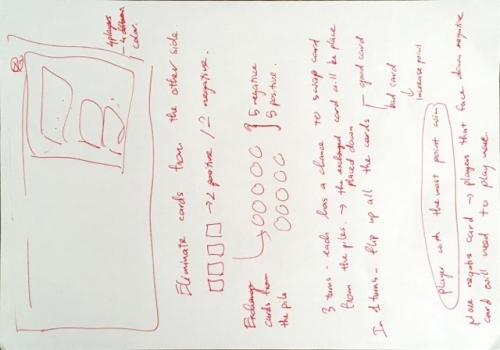 4 players
- 4 different
color.
Eliminate cards from the other side
→ 2 positive / 2 negative.
Exchange
cards from
the pile
5 negative
5 positive.
3 turns - each has a chance to swap card
from the piles. → the exchanged card will be place
placed down
In 1 turns - flip up all the cards
good card
bad card
↓
increase point
Player with the most point wins
More negative card → players that face down negative
card will need to play more